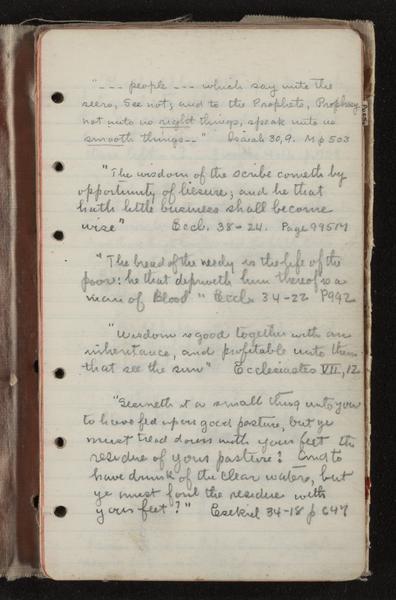 "--- people --- which say unto the
seers, See not; and to the Prophets, Prophesy
not unto us right things, speak unto us
smooth things--" Isaiah 30,9. M p 503
"The wisdom of the scribe cometh by
opportunity of leisure; and he that
hath little business shall become
wise" Eccl. 38-24. Page 995M
"The bread of the needy is the life of the
poor: he that depriveth him thereof is a
man of Blood" Eccls 34-22 P992
"Wisdom is good together with an
inheritance, and profitable unto them
that see the sun" Ecclesiastes VII, 12
"Seemeth it a small thing unto you
to have fed upon good pasture, but ye
must tread down with your feet the
residue of your pasture? And to
have drunk of the clear waters, but
ye must foul the residue with
your feet?" Esekiel 34-18 p 647